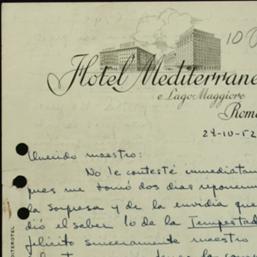 100
Hotel Mediterrane
e Lago Maggiore
Roma
28-10-52
Querido maestro:
No le contesté inmediatam
pues me tomó dos días reponerm
la sorpresa y de la envidia que
dió el saber lo de la Tempestad
felicito sinceramente maestro